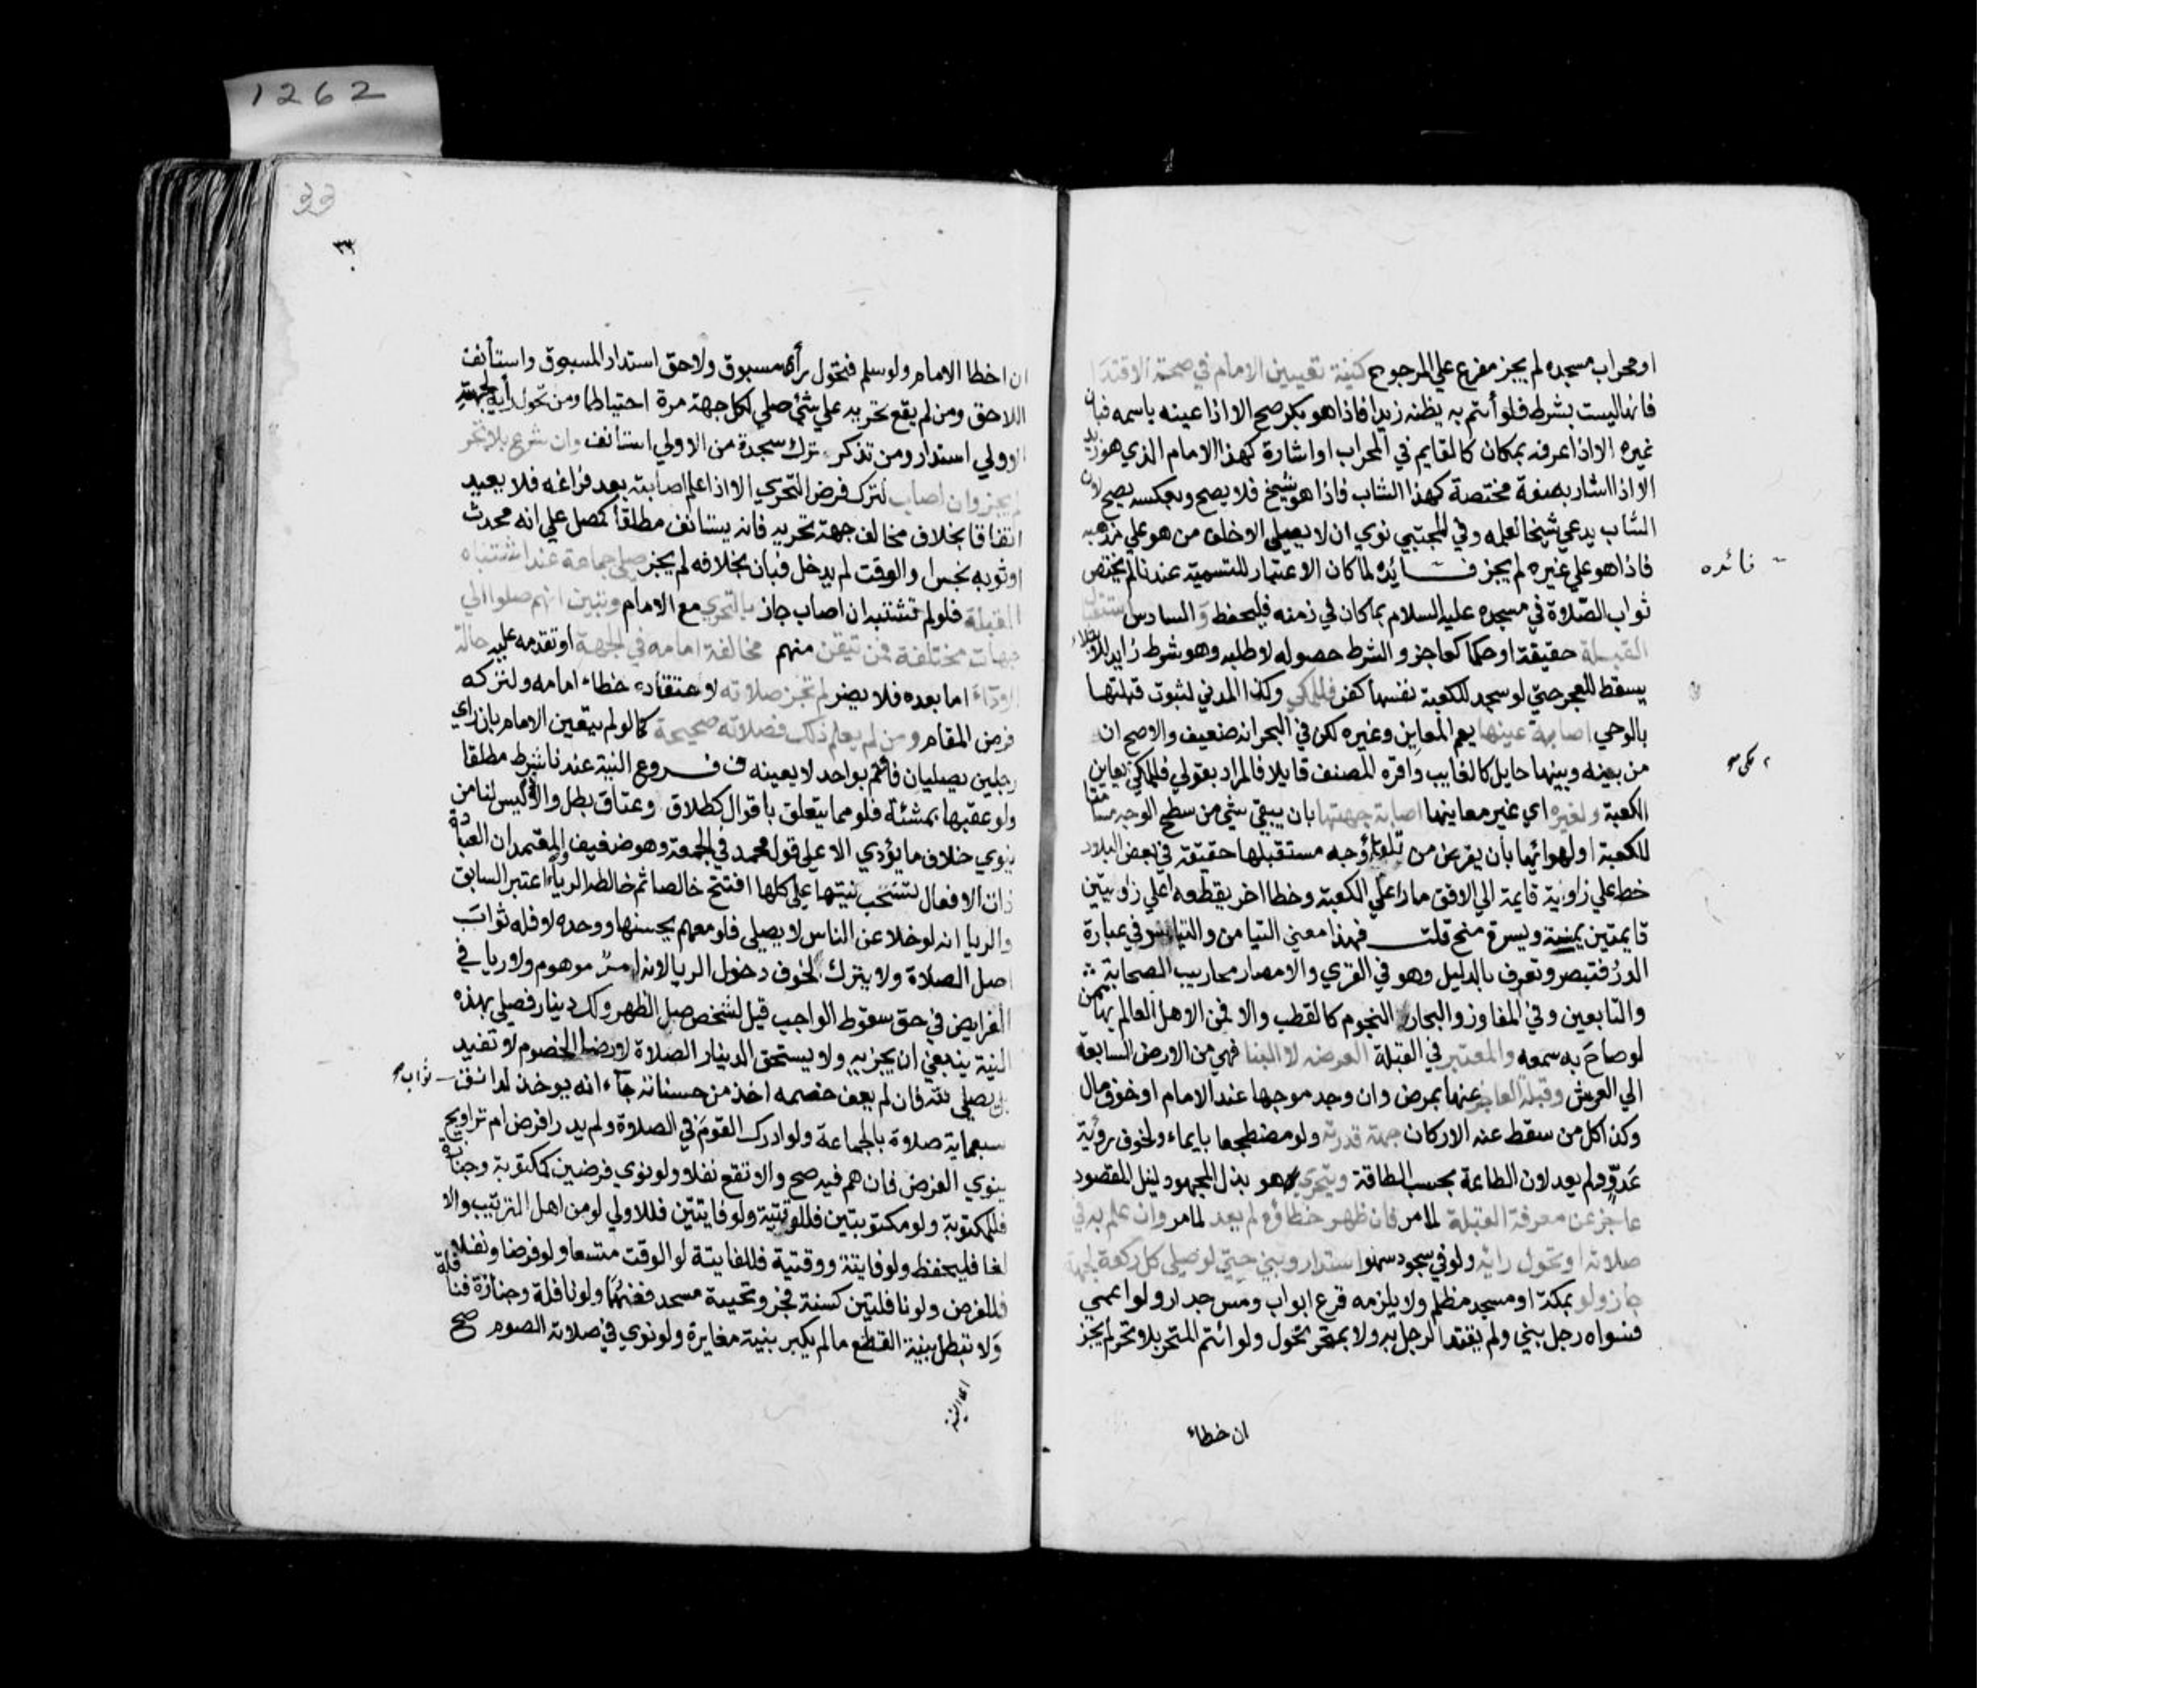 1262
او محراب مسجده لم يجز مفرع علي المرجوح كنية تعيين الامام في صحة الاقتدا
فانها ليست بشرط فلو أتم به يظنه زيدا فاذا هو بكر صح الا اذا عينه باسمه فبان
غيره الا اذا عرفه بمكان كالقايم في المحراب او اشارة كهذا الامام الذي هو زيد
الا اذا اشار بصفة مختصة كهذا الشاب فاذا هو شيخ فلا يصح وبعكسه يصح لان
الشاب يدعي شيخا لعلمه وفي المجتبي نوي ان لا يصلي الا خلف من هو علي مذهبه
فاذا هو علي غيره لم يجز فائده لما كان الاعتبار للتسمية عندنا لم يختص
فائده
ثواب الصلاة في مسجده عليه السلام بما كان في زمنه فليحفظ و السادس استقبال
القبلة حقيقة او حكما كعاجز والشرط حصوله لا طلبه وهو شرط زايد للابتلاء
يسقط للعجز حتي لو سجد للكعبة نفسها كفر فللمكي وكذا المدني لثبوت قبلتها
بالوحي اصابة عينها يعم المعاين وغيره لكن في البحر انه ضعيف والاصح ان
من بينه وبينها حايل كالغايب واقره المصنف قايلا فالمراد بقولي فللمكي يعاين
الكعبة ولغيره اي غير معاينها اصابة جهتها بان يبقي شي من سطح الوجه مسامتا
للكعبة او لهوائها بأن يفرض من تلقاء وجه مستقبلها حقيقة في بعض البلاد
خط علي زاوية قايمة الي الافق مارا علي الكعبة وخطا اخر يقطعه علي زاويتين
قايمتين يمنة ويسرة منح قلت فهذا معني التيامن والتياسر في عبارة
الدرر فتبصر وتعرف بالدليل وهو في القري والامصار محاريب الصحابة
والتابعين وفي المفاوز والبحار النجوم كالقطب والا فمن الاهل العالم بها ممن
لو صاح به سمعه والمعتبر في القبلة العرصة لا البنا فهي من الارض السابعة
الي العرش وقبلة العاجز عنها بمرض وان وجد موجها عند الامام او خوف مال
وكذا كل من سقط عنه الاركان جهة قدرته ولو مضطجعا بايماء ولخوف رؤية
عدو ولم يعد لان الطاعة بحسب الطاقة ويتحري هو بذل المجهود لنيل المقصود
عاجز عن معرفة القبلة لما مر فان ظهر خطاؤه لم يعد لما مر وان علم به في
صلاته او تحول رايه ولو في سجود سهو استدار وبني حتي لو صلي كل ركعة لجهة
جاز ولو بمكة او مسجد مظلم ولا يلزمه قرع ابواب ومس جدار ولو اعمي
فسواه رجل بني ولم يقتد الرجل به ولا بمتحر تحول ولو ائتم المتحر بلا تحر لم يجز
ان خطاء
33
٣٣
ان اخطا الامام ولو سلم فتحول رأي مسبوق ولاحق استدار المسبوق واستأنف
اللاحق ومن لم يقع تحريه علي شيء صلي لكل جهة مرة احتياطا ومن تحول رأيه لجهته
الاولي استدار ومن تذكر ترك سجدة من الاولي استانف وان شرع بلا تحر
لم يجز وان اصاب لترك فرض التحري الا اذا علم اصابته بعد فراغه فلا يعيد
اتفاقا بخلاف مخالف جهة تحريه فانه يستانف مطلقا كمصل علي انه محدث
او ثوبه نجس او الوقت لم يدخل فبان بخلافه لم يجز صلي جماعة عند اشتباه
القبلة فلو لم تشتبه ان اصاب جاز بالتحري مع الامام وتبين انهم صلوا الي
جهات مختلفة فمن تيقن منهم مخالفة امامه في الجهة او تقدمه عليه حالة
الاداء اما بعده فلا يضر لم تجز صلاته لاعتقاده خطاء امامه ولتركه
فرض المقام ومن لم يعلم ذلك فصلاته صحيحة كما لو لم يتعين الامام بان راي
رجلين يصليان فأتم بواحد لا بعينه فروع النية عندنا شرط مطلقا
ولو عقبها بمشئة فلو مما يتعلق باقوال كطلاق وعتاق بطل والا ليس لنا من
ينوي خلاف ما يؤدي الا علي قول محمد في الجمعة وهو ضعيف والمعتمد ان العبادة
ذات الافعال تنسحب نيتها علي كلها افتتح خالصا ثم خالطه الرياء اعتبر السابق
والريا انه لو خلا عن الناس لا يصلي فلو معهم يحسنها ووحده لا فله ثواب
اصل الصلاة ولا يترك لخوف دخول الريا لانه امر موهوم ولا ريا في
الفرايض في حق سقوط الواجب قيل لشخص صل الظهر ولك دينار فصلي بهذه
النية ينبغي ان يجزيه ولا يستحق الدينار الصلاة لارضا الخصوم لا تفيد
بل يصلي لله فان لم يعف خصمه اخذ من حسناته جآء انه يوخذ لدانق
ثواب
سبعماية صلاة بالجماعة ولو ادرك القوم في الصلاة ولم يدر افرض ام تراويح
ينوي الفرض فان هم فيه صح والا تقع نفلا ولو نوي فرضين كمكتوبة وجنازة
فللمكتوبة ولو مكتوبتين فللوقتية ولو فايتتين فللاولي لو من اهل الترتيب والا
لغا فليحفظ ولو فايتة ووقتية فللفايتة لو الوقت متسعا ولو فرضا ونفلا
فللفرض ولو نافلتين كسنة فجر وتحية مسجد فعنهما ولو نافلة وجنازة فنافلة
ولا تبطل بنية القطع ما لم يكبر بنية مغايرة ولو نوي في صلاته الصوم صح